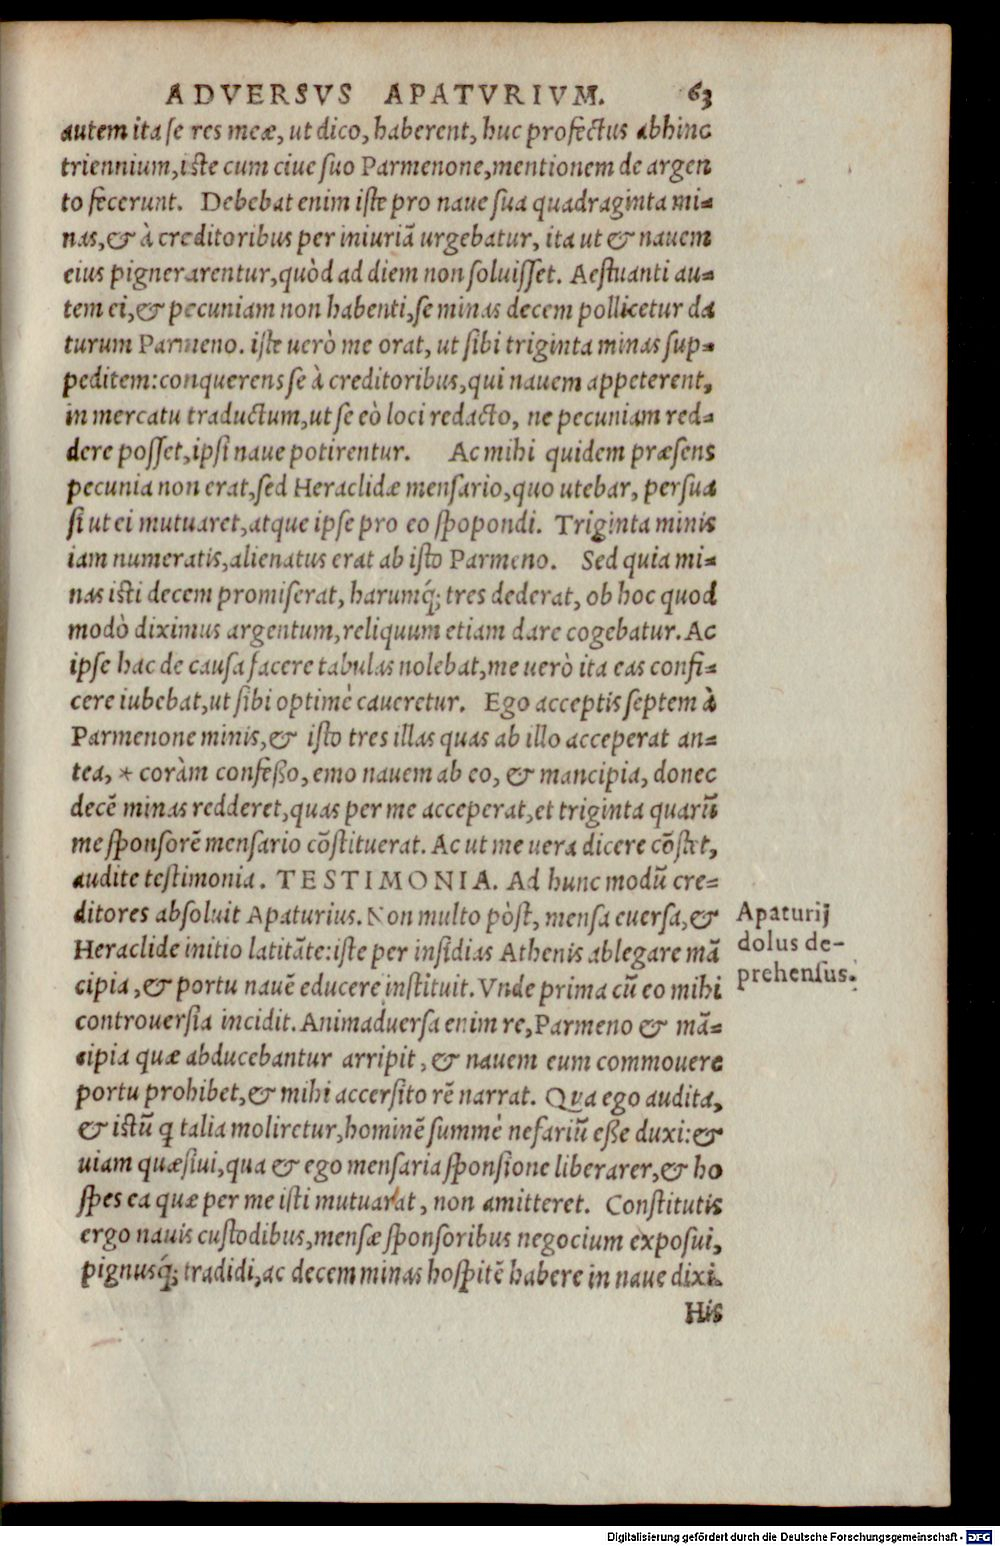 ADVERSVS APATVRIVM. 63
autem ita se res meæ, ut dico, haberent, huc profectus abhinc
triennium, iste cum ciue suo Parmenone, mentionem de argen
to fecerunt. Debebat enim iste pro naue sua quadraginta mi=
nas, & à creditoribus per iniuriã urgebatur, ita ut & nauem
eius pignerarentur, quòd ad diem non soluisset. Aestuanti au=
tem ei, & pecuniam non habenti, se minas decem pollicetur da
turum Parmeno. iste uerò me orat, ut sibi triginta minas sup=
peditem: conquerens se à creditoribus, qui nauem appeterent,
in mercatu traductum, ut se eò loci redacto, ne pecuniam red=
dere posset, ipsi naue potirentur. Ac mihi quidem præsens
pecunia non erat, sed Heraclidæ mensario, quo utebar, persua
si ut ei mutuaret, atque ipse pro eo spopondi. Triginta minis
iam numeratis, alienatus erat ab isto Parmeno. Sed quia mi=
nas isti decem promiserat, harumq́; tres dederat, ob hoc quod
modò diximus argentum, reliquum etiam dare cogebatur. Ac
ipse hac de causa facere tabulas nolebat, me uerò ita eas confi=
cere iubebat, ut sibi optimè caueretur. Ego acceptis septem à
Parmenone minis, & isto tres illas quas ab illo acceperat an=
tea, * coràm confeßo, emo nauem ab eo, & mancipia, donec
decẽ minas redderet, quas per me acceperat, et triginta quarũ
me sponsorẽ mensario cõstituerat. Ac ut me uera dicere cõstet,
audite testimonia. TESTIMONIA. Ad hunc modũ cre=
ditores absoluit Apaturius. Non multo pòst, mensa euersa, &
Heraclide initio latitãte: iste per insidias Athenis ablegare mã
cipia, & portu nauẽ educere instituit. Vnde prima cũ eo mihi
controuersia incidit. Animaduersa enim re, Parmeno & mã=
cipia quæ abducebantur arripit, & nauem eum commouere
portu prohibet, & mihi accersito rẽ narrat. Qua ego audita,
& istũ q talia moliretur, hominẽ summè nefariũ eße duxi: &
uiam quæsiui, qua & ego mensaria sponsione liberarer, & ho
spes ea quæ per me isti mutuarat, non amitteret. Constitutis
ergo nauis custodibus, mensæ sponsoribus negocium exposui,
pignusq́; tradidi, ac decem minas hospitẽ habere in naue dixi.
His
Apaturij
dolus de-
prehensus.
Digitalisierung gefördert durch die Deutsche Forschungsgemeinschaft - DFG